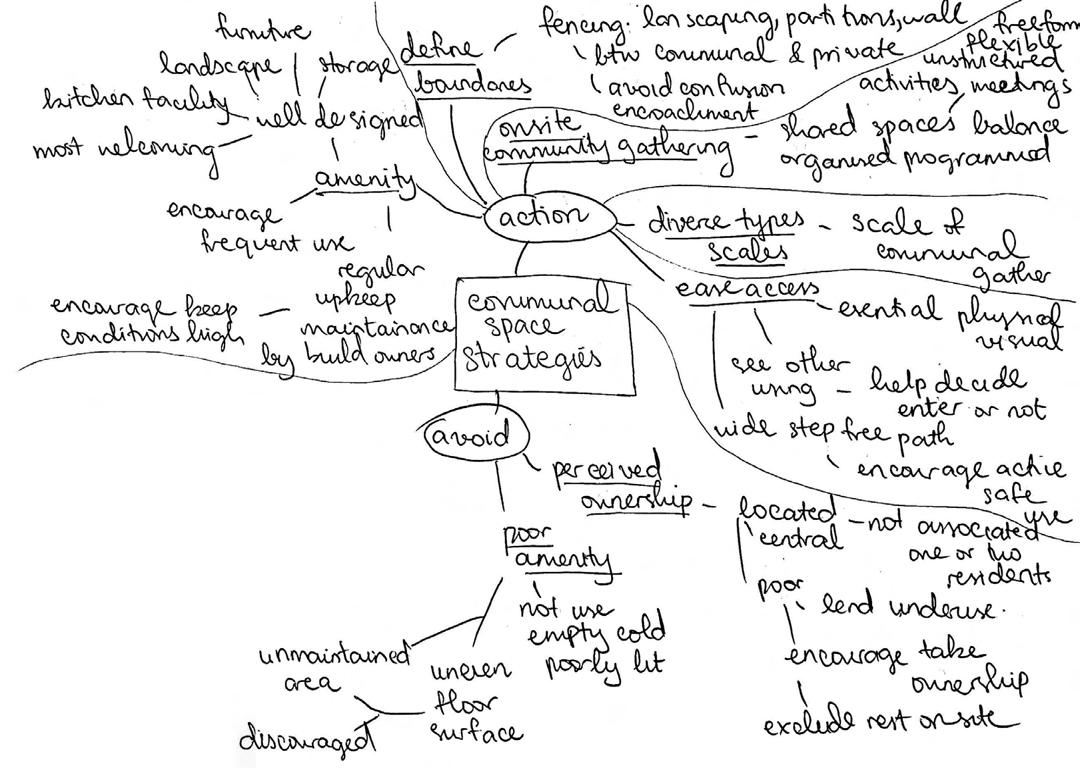 furniture
landscape
storage
kitchen facility
well designed
most welcoming
amenity
encourage
frequent use
regular
upkeep
maintainance
by build owners
encourage keep
conditions high
define
boundares
fencing: lanscaping, partitions, wall
btw communal & private
avoid confusion
encroachment
onsite
community gathering
freeform
flexible
unstructured
activities, meetings
shared spaces balance
organised programmed
action
diverse types
scales
scale of
communal
gather
ease access
exential physical
visual
see other
using
help decide
enter or not
wide step free path
encourage active
safe
use
communal
space
strategies
avoid
perceived
ownership
located
central
not associated
one or two
residents
poor
lend underuse.
encourage take
ownership
exclude rest onsite
poor
amenity
not use
empty cold
poorly lit
unmaintained
area
uneven
floor
surface
discouraged